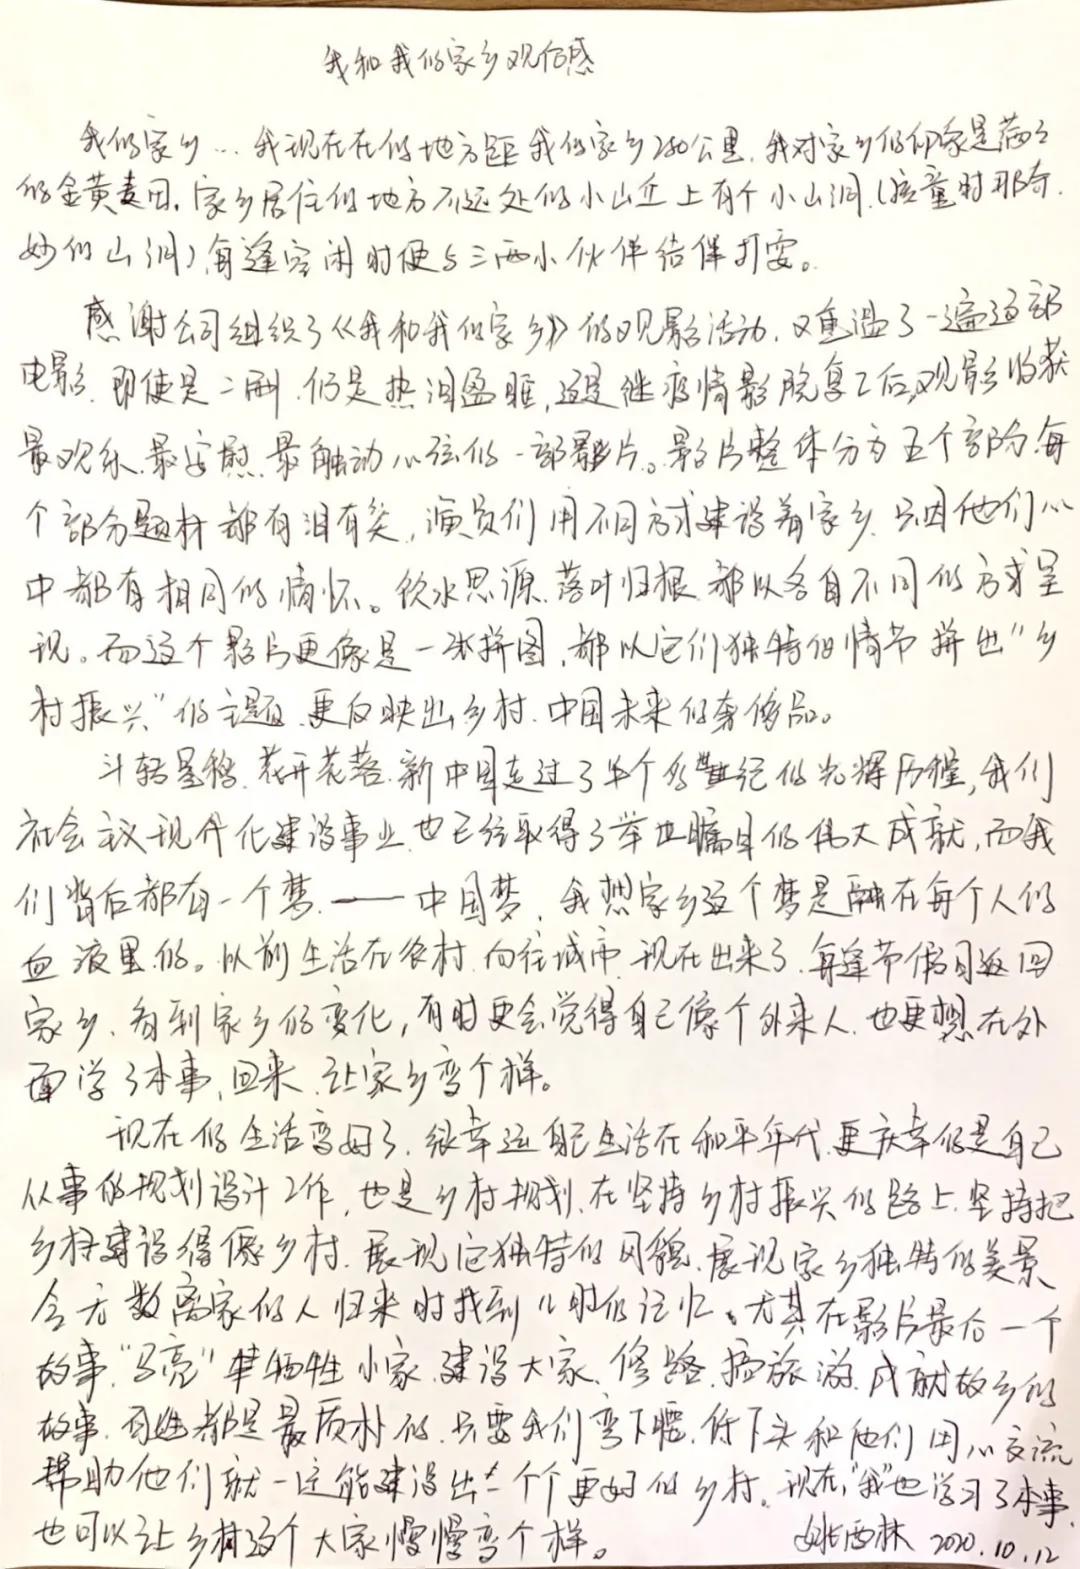 我和我的家乡观后感
我的家乡…我现在在的地方距我的家乡280公里,我对家乡的印象是满满
的金黄麦田,家乡居住的地方不远处的小山丘上有个小山洞,(孩童时那奇
妙的山洞),每逢空闲时便与三两小伙伴结伴打耍。
感谢公司组织了《我和我的家乡》的观影活动,又重温了一遍这部
电影,即使是二刷,仍是热泪盈眶,这是继疫情影院复工后,观影收获
最欢乐、最安慰、最触动心弦的一部影片。影片整体分为五个部分,每
个部分题材都有泪有笑,演员们用不同方式建设着家乡,只因他们心
中都有相同的情怀。饮水思源、落叶归根,都以各自不同的方式呈
现。而这个影片更像是一张拼图,都以它们独特的情节拼出"乡
村振兴"的主题,更反映出乡村、中国未来的奢侈品。
斗转星移,花开花落,新中国走过了半个多世纪的光辉历程,我们
社会主义现代化建设事业也已经取得了举世瞩目的伟大成就,而我
们背后都有一个梦——中国梦,我想家乡这个梦是融在每个人的
血液里的。以前生活在农村,向往城市,现在出来了,每逢节假日返回
家乡,看到家乡的变化,有时更会觉得自己像个外来人,也更想在外
面学了本事,回来,让家乡变个样。
现在的生活变好了,很幸运自己生活在和平年代,更庆幸的是自己
从事的规划设计工作,也是乡村规划,在坚持乡村振兴的路上,坚持把
乡村建设得像乡村,展现它独特的风貌,展现家乡独特的美景
令无数离家的人归来时找到儿时的记忆。尤其在影片最后一个
故事,"马亮"牺牲小家,建设大家,修路,搞旅游,成就故乡的
故事,百姓都是最质朴的,只要我们弯下腰,低下头和他们用心交流
帮助他们就一定能建设出一个个更好的乡村。现在,"我"也学习了本事,
也可以让乡村这个大家慢慢变个样。
姚西林 2020.10.12